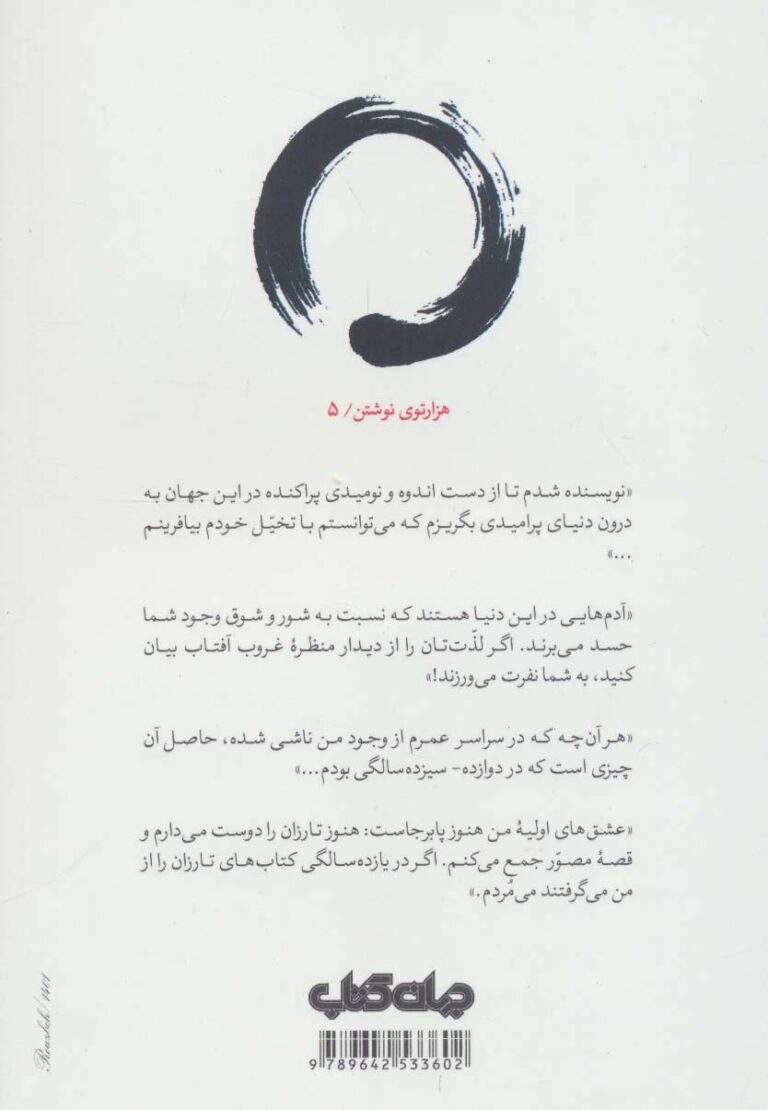 هزارتوی نوشتن/ ۵
«نویسنده شدم تا از دست اندوه و نومیدی پراکنده در این جهان به
درون دنیای پرامیدی بگریزم که می‌توانستم با تخیّل خودم بیافرینم
...»
«آدم‌هایی در این دنیا هستند که نسبت به شور و شوق وجود شما
حسد می‌برند. اگر لذّت‌تان را از دیدار منظرهٔ غروب آفتاب بیان
کنید، به شما نفرت می‌ورزند!»
«هر آن‌چه که در سراسر عمرم از وجود من ناشی شده، حاصل آن
چیزی است که در دوازده- سیزده‌سالگی بودم...»
«عشق‌های اولیهٔ من هنوز پابرجاست: هنوز تارزان را دوست می‌دارم و
قصهٔ مصوّر جمع می‌کنم. اگر در یازده‌سالگی کتاب‌های تارزان را از
من می‌گرفتند می‌مُردم.»
جهان کتاب
9 789642 533602
Rouzbeh/ 1401